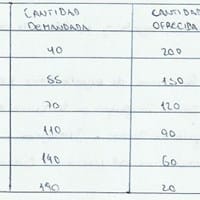 CANTIDAD DEMANDADA CANTIDAD OFRECIDA
40 200
55 150
70 120
110 90
140 60
190 20